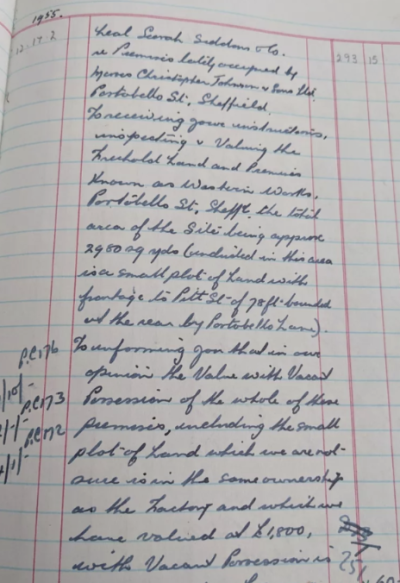 1955.
12.17.2
Neal Scorah Siddons & Co.
re Premises lately occupied by
Messrs Christopher Johnson & Sons Ltd.
Portobello St. Sheffield.
293 15
To receiving your instructions,
inspecting & Valuing the
Freehold Land and Premises
Known as Western Works,
Portobello St. Sheffd. the total
area of the Site being approx
2980 sq yds (included in this area
is a small plot of Land with
frontage to Pitt St of 78ft bounded
at the rear by Portobello Lane).
P.C.176
To informing you that in our
opinion the Value with Vacant
P.C.173
Possession of the whole of these
P.C.172
premises, including the small
plot of Land which we are not
sure is in the same ownership
as the Factory and which we
have valued at £1,800,
with Vacant Possession is